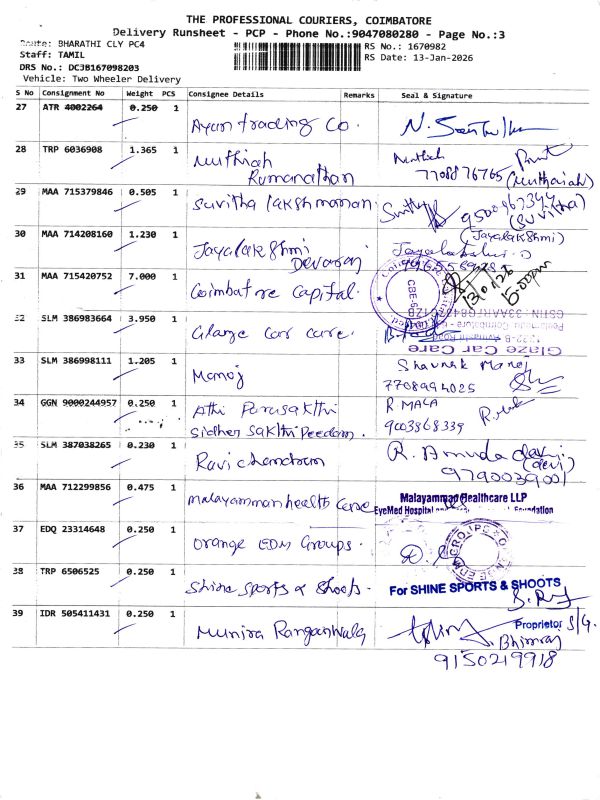 THE PROFESSIONAL COURIERS, COIMBATORE
Delivery Runsheet - PCP - Phone No.:9047080280 - Page No.:3
Route: BHARATHI CLY PC4
RS No.: 1670982
Staff: TAMIL
RS Date: 13-Jan-2026
DRS No.: DCJB167098203
Vehicle: Two Wheeler Delivery
S No Consignment No Weight PCS Consignee Details Remarks Seal & Signature
27 ATR 4002264 0.250 1 Ayan trading Co.
28 TRP 6036908 1.365 1 Muthiah Ramanathan
Muthiah
7708876765 (Muthaiah)
29 MAA 715379846 0.505 1 Suvitha lakshmanan
(Suvitha)
30 MAA 714208160 1.230 1 Jayalakshmi Devaraj
(Jayalakshmi)
31 MAA 715420752 7.000 1 Coimbatore Capital.
13/01/26
5:00pm
32 SLM 386983664 3.950 1 Glaze Car care.
Glaze Car Care
33 SLM 386998111 1.205 1 Manoj
Shaunak Manoj
7708994025
34 GGN 9000244957 0.250 1 Athi Parasakthi
Sidher Sakthi Peedam.
R MALA
9003868339
35 SLM 387038265 0.230 1 Ravichandran
R. Amuda devi
(devi)
9790039001
36 MAA 712299856 0.475 1 Malayamman health Care
Malayamman Healthcare LLP
EyeMed Hospital Foundation
37 EDQ 23314648 0.250 1 Orange EDM Groups.
38 TRP 6506525 0.250 1 Shine Sports & Shoots.
For SHINE SPORTS & SHOOTS
Proprietor
39 IDR 505411431 0.250 1 Munira Ranganwala
S/G.
Bhimraj
9150219918